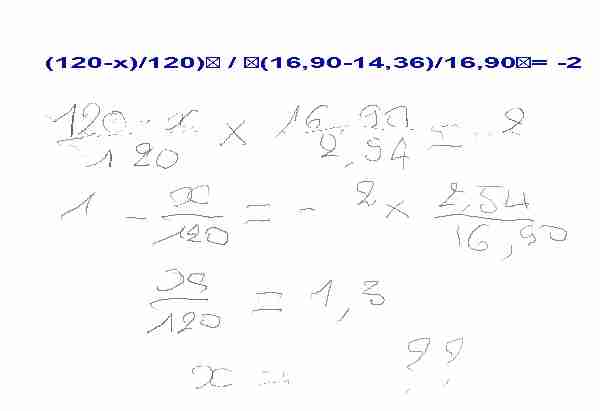 (120-x)/120)▯ / ▯(16,90-14,36)/16,90▯= -2
120 - x / 120 × 16,90 / 2,54 = - 2
1 - x / 120 = - 2 × 2,54 / 16,90
x / 120 = 1,3
x = ??